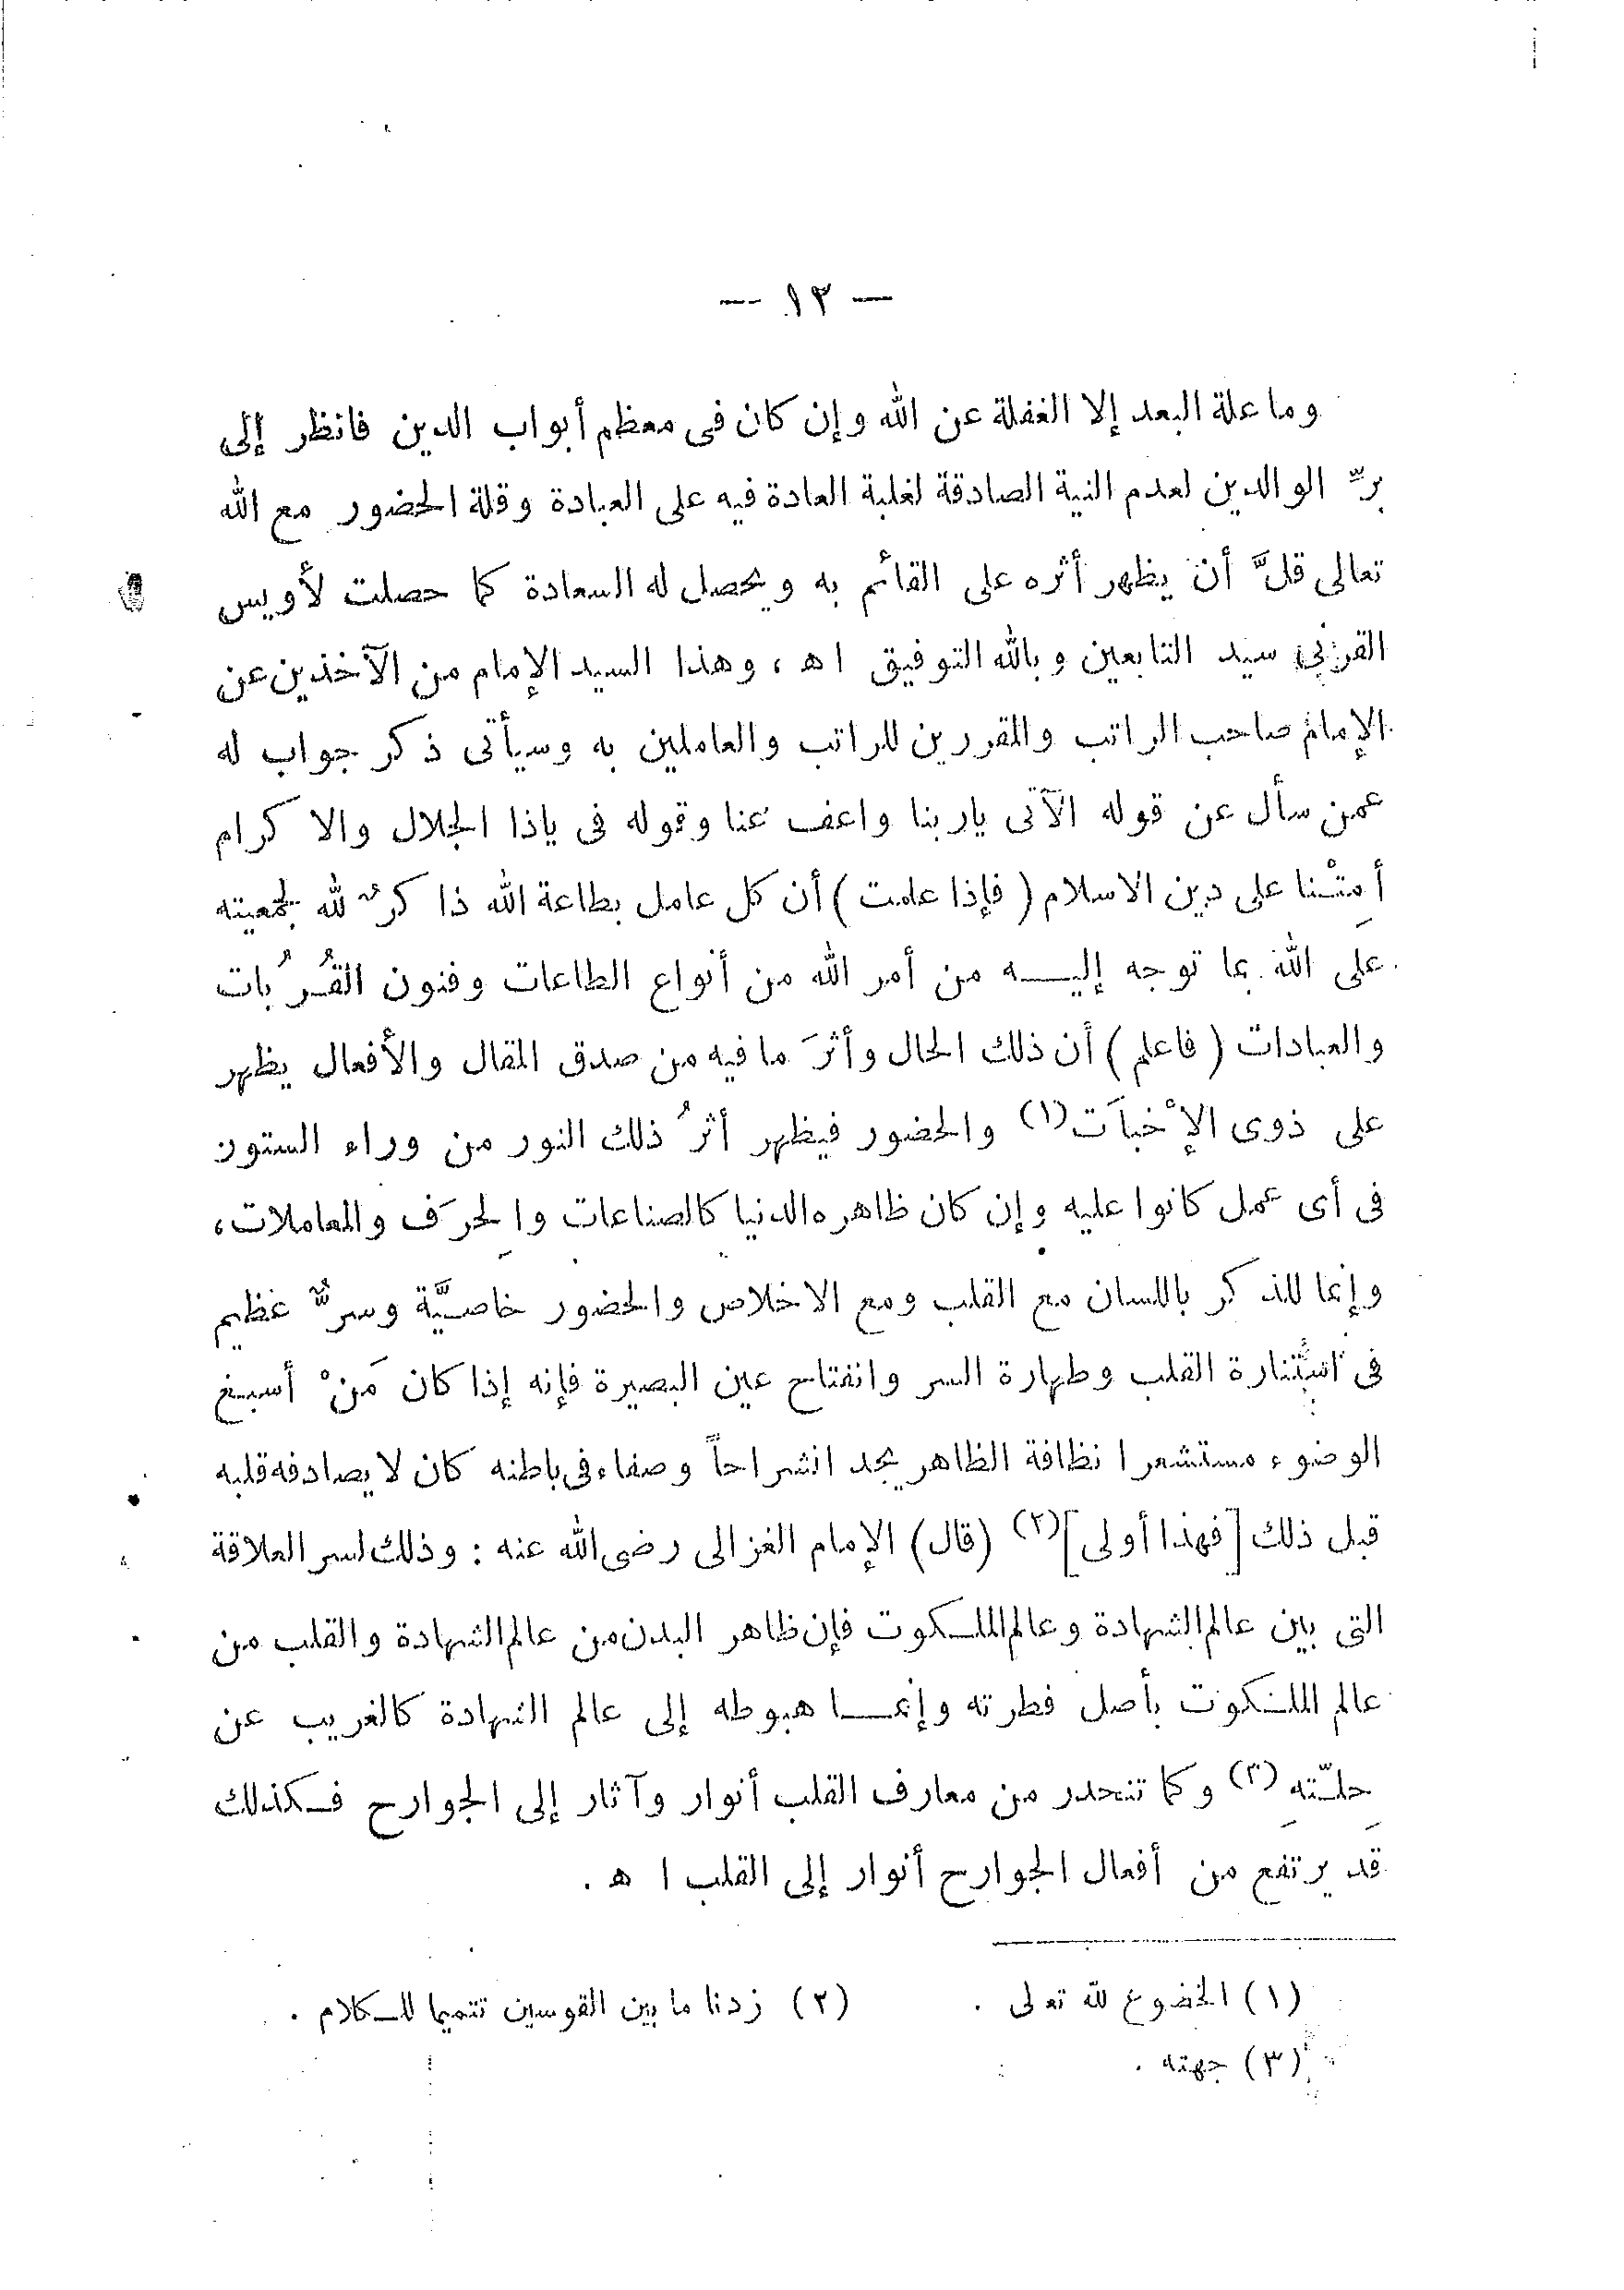 — ١٣ —
وما علة البعد إلا الغفلة عن الله وإن كان فى معظم أبواب الدين فانظر إلى
برِّ الوالدين لعدم النية الصادقة لغلبة العادة فيه على العبادة وقلة الحضور مع الله
تعالى قلَّ أن يظهر أثره على القائم به ويحصل له السعادة كما حصلت لأويس
القرنى سيد التابعين وبالله التوفيق ا ه ، وهذا السيد الإمام من الآخذين عن
الإمام صاحب الراتب والمقررين للراتب والعاملين به وسيأتى ذكر جواب له
عمن سأل عن قوله الآتى ياربنا واعف عنا وقوله فى ياذا الجلال والاكرام
أمِتْنا على دين الاسلام ( فإذا علمت ) أن كل عامل بطاعة الله ذاكرٌ لله بجمعيته
على الله بما توجه إليه من أمر الله من أنواع الطاعات وفنون القُرُبات
والعبادات ( فاعلم ) أن ذلك الحال وأثرَ ما فيه من صدق المقال والأفعال يظهر
على ذوى الإخْبَات (١) والحضور فيظهر أثرُ ذلك النور من وراء الستور
فى أى عمل كانوا عليه وإن كان ظاهره الدنيا كالصناعات والحِرَف والمعاملات ،
وإنما للذكر باللسان مع القلب ومع الاخلاص والحضور خاصيَّة وسرٌّ عظيم
فى استنارة القلب وطهارة السر وانفتاح عين البصيرة فإنه إذا كان مَنْ أسبغ
الوضوء مستشعرا نظافة الظاهر يجد انشراحاً وصفاء فى باطنه كان لا يصادفه قلبه
قبل ذلك [ فهذا أولى ] (٢) ( قال ) الإمام الغزالى رضى الله عنه : وذلك لسر العلاقة
التى بين عالم الشهادة وعالم الملكوت فإن ظاهر البدن من عالم الشهادة والقلب من
عالم الملكوت بأصل فطرته وإنما هبوطه إلى عالم الشهادة كالغريب عن
حِلَّتهِ (٣) وكما تنحدر من معارف القلب أنوار وآثار إلى الجوارح فكذلك
قد يرتفع من أفعال الجوارح أنوار إلى القلب ا ه .
(١) الخضوع لله تعالى . (٢) زدنا ما بين القوسين تتميما للكلام .
(٣) جهته .